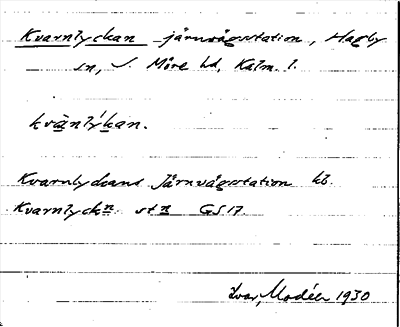 Kvarnlyckan järnvägsstation, Hagby
sn, S. Möre hd, Kalm. l.
kvànlýkan.
Kvarnlyckans Järnvägsstation kb.
Kvarnlyckn stn GS17.
Ivar Modéer 1930